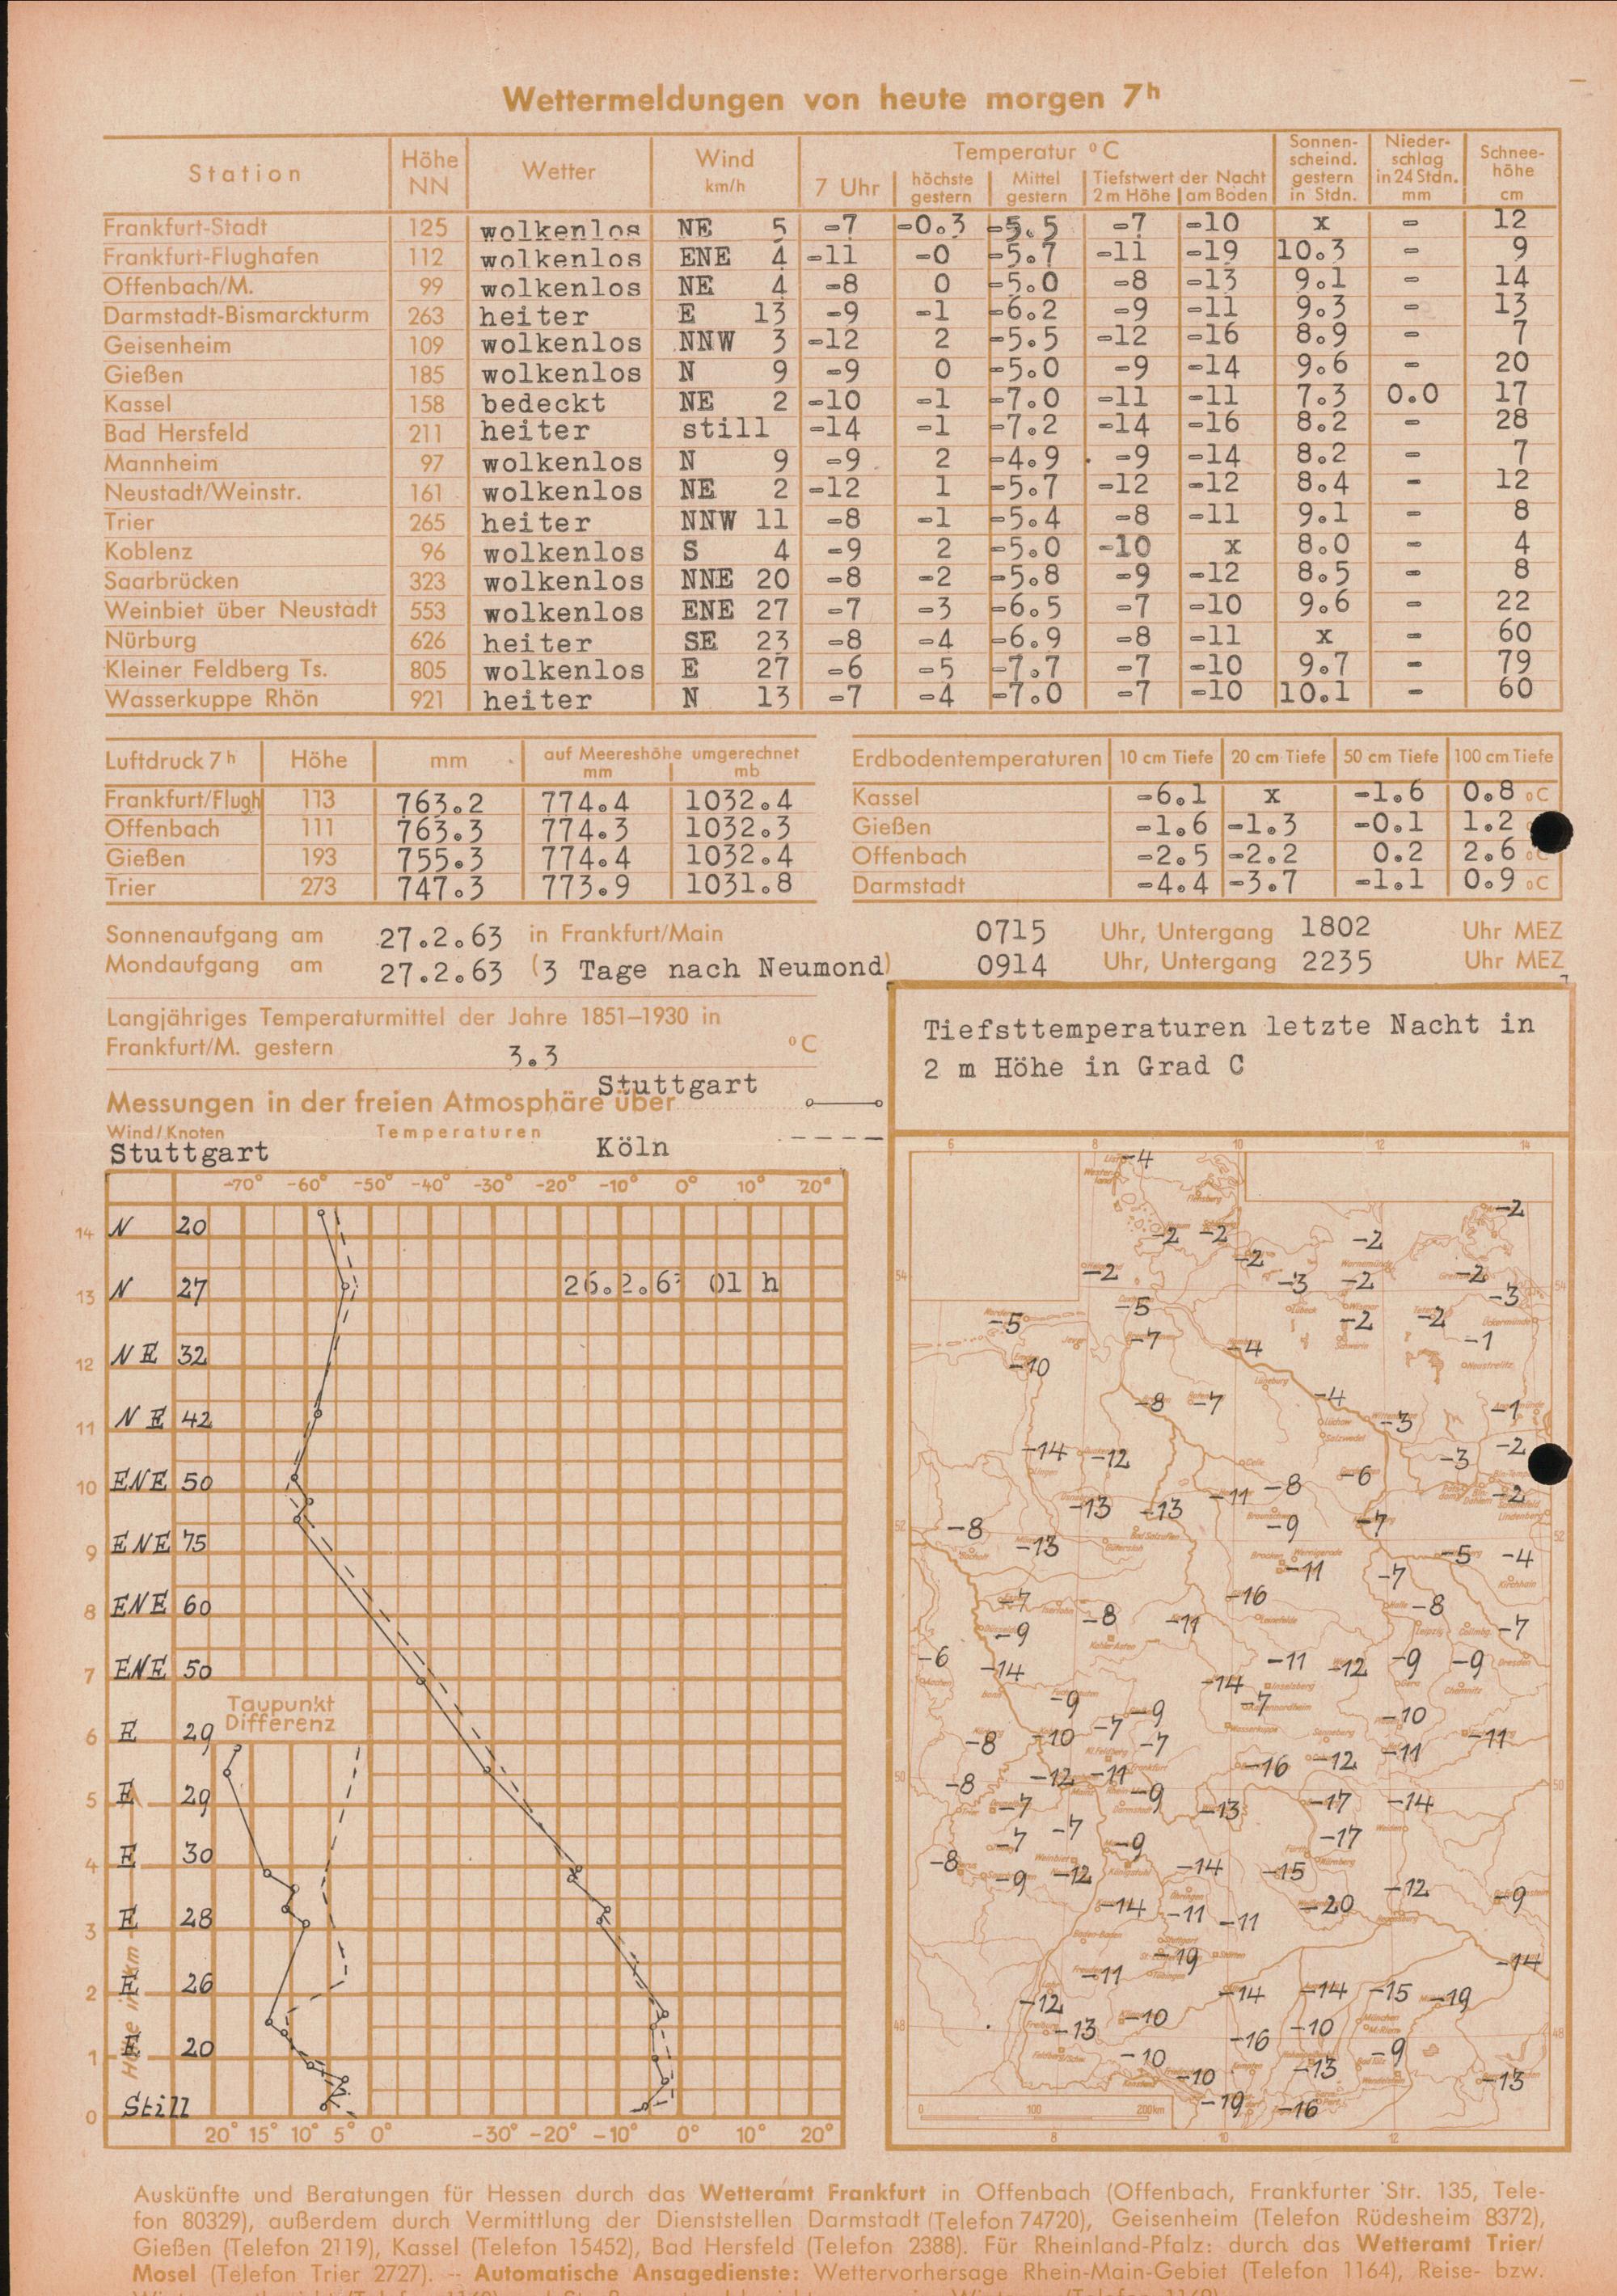 Wettermeldungen von heute morgen 7ʰ
Station | Höhe NN | Wetter | Wind km/h | Temperatur °C | Sonnen-scheind. gestern in Stdn. | Nieder-schlag in 24 Stdn. mm | Schnee-höhe cm
7 Uhr | höchste gestern | Mittel gestern | Tiefstwert der Nacht 2 m Höhe | am Boden
Frankfurt-Stadt 125 wolkenlos NE 5 -7 -0.3 -5.5 -7 -10 x - 12
Frankfurt-Flughafen 112 wolkenlos ENE 4 -11 -0 -5.7 -11 -19 10.3 - 9
Offenbach/M. 99 wolkenlos NE 4 -8 0 -5.0 -8 -13 9.1 - 14
Darmstadt-Bismarckturm 263 heiter E 13 -9 -1 -6.2 -9 -11 9.3 - 13
Geisenheim 109 wolkenlos NNW 3 -12 2 -5.5 -12 -16 8.9 - 7
Gießen 185 wolkenlos N 9 -9 0 -5.0 -9 -14 9.6 - 20
Kassel 158 bedeckt NE 2 -10 -1 -7.0 -11 -11 7.3 0.0 17
Bad Hersfeld 211 heiter still -14 -1 -7.2 -14 -16 8.2 - 28
Mannheim 97 wolkenlos N 9 -9 2 -4.9 -9 -14 8.2 - 7
Neustadt/Weinstr. 161 wolkenlos NE 2 -12 1 -5.7 -12 -12 8.4 - 12
Trier 265 heiter NNW 11 -8 -1 -5.4 -8 -11 9.1 - 8
Koblenz 96 wolkenlos S 4 -9 2 -5.0 -10 x 8.0 - 4
Saarbrücken 323 wolkenlos NNE 20 -8 -2 -5.8 -9 -12 8.5 - 8
Weinbiet über Neustadt 553 wolkenlos ENE 27 -7 -3 -6.5 -7 -10 9.6 - 22
Nürburg 626 heiter SE 23 -8 -4 -6.9 -8 -11 x - 60
Kleiner Feldberg Ts. 805 wolkenlos E 27 -6 -5 -7.7 -7 -10 9.7 - 79
Wasserkuppe Rhön 921 heiter N 13 -7 -4 -7.0 -7 -10 10.1 - 60
Luftdruck 7ʰ | Höhe | mm | auf Meereshöhe umgerechnet mm | mb
Frankfurt/Flugh 113 763.2 774.4 1032.4
Offenbach 111 763.3 774.3 1032.3
Gießen 193 755.3 774.4 1032.4
Trier 273 747.3 773.9 1031.8
Erdbodentemperaturen | 10 cm Tiefe | 20 cm Tiefe | 50 cm Tiefe | 100 cm Tiefe
Kassel -6.1 x -1.6 0.8 °C
Gießen -1.6 -1.3 -0.1 1.2
Offenbach -2.5 -2.2 0.2 2.6 °C
Darmstadt -4.4 -3.7 -1.1 0.9 °C
Sonnenaufgang am 27.2.63 in Frankfurt/Main 0715 Uhr, Untergang 1802 Uhr MEZ
Mondaufgang am 27.2.63 (3 Tage nach Neumond) 0914 Uhr, Untergang 2235 Uhr MEZ
Langjähriges Temperaturmittel der Jahre 1851–1930 in
Frankfurt/M. gestern 3.3 °C
Messungen in der freien Atmosphäre über Stuttgart
Wind/Knoten Temperaturen
Stuttgart Köln
-70° -60° -50° -40° -30° -20° -10° 0° 10° 20°
14 N 20
26.2.63 01 h
13 N 27
12 NE 32
11 NE 42
10 ENE 50
9 ENE 75
8 ENE 60
7 ENE 50
Taupunkt
Differenz
6 E 29
5 E 29
4 E 30
3 E 28
2 E 26
1 E 20
0 Still
Höhe in km
20° 15° 10° 5° 0° -30° -20° -10° 0° 10° 20°
Tiefsttemperaturen letzte Nacht in
2 m Höhe in Grad C
6 8 10 12 14
-4
-2
-2 -2 -2
-2
-2 -3 -2 -2
-3
-5 -5 -2 -2
-7 -4 -1
-10
-8 -7 -4 -3 -1
-14 -12 -3 -2
-8 -6
-13 -13 -11 -2
-8 -9 -7
-13 -5 -4
-11 -7
-7 -16 -8
-8 -11 -7
-9
-6 -14 -11 -12 -9 -9
-14
-9 -9 -7 -10
-8 -10 -7 -7 -11 -11
-8 -12 -11 -16 -12
-7 -9 -13 -17 -14
-7 -7 -9 -17
-8 -9 -12 -14 -15
-14 -11 -11 -20 -12 -9
-19 -14
-11
-12 -14 -14 -15 -19
-13 -10 -16 -10
-10 -13 -9
-10 -13
-19 -16
54 52 50 48
0 100 200km
8 10 12
Auskünfte und Beratungen für Hessen durch das Wetteramt Frankfurt in Offenbach (Offenbach, Frankfurter Str. 135, Tele-
fon 80329), außerdem durch Vermittlung der Dienststellen Darmstadt (Telefon 74720), Geisenheim (Telefon Rüdesheim 8372),
Gießen (Telefon 2119), Kassel (Telefon 15452), Bad Hersfeld (Telefon 2388). Für Rheinland-Pfalz: durch das Wetteramt Trier/
Mosel (Telefon Trier 2727). -- Automatische Ansagedienste: Wettervorhersage Rhein-Main-Gebiet (Telefon 1164), Reise- bzw.